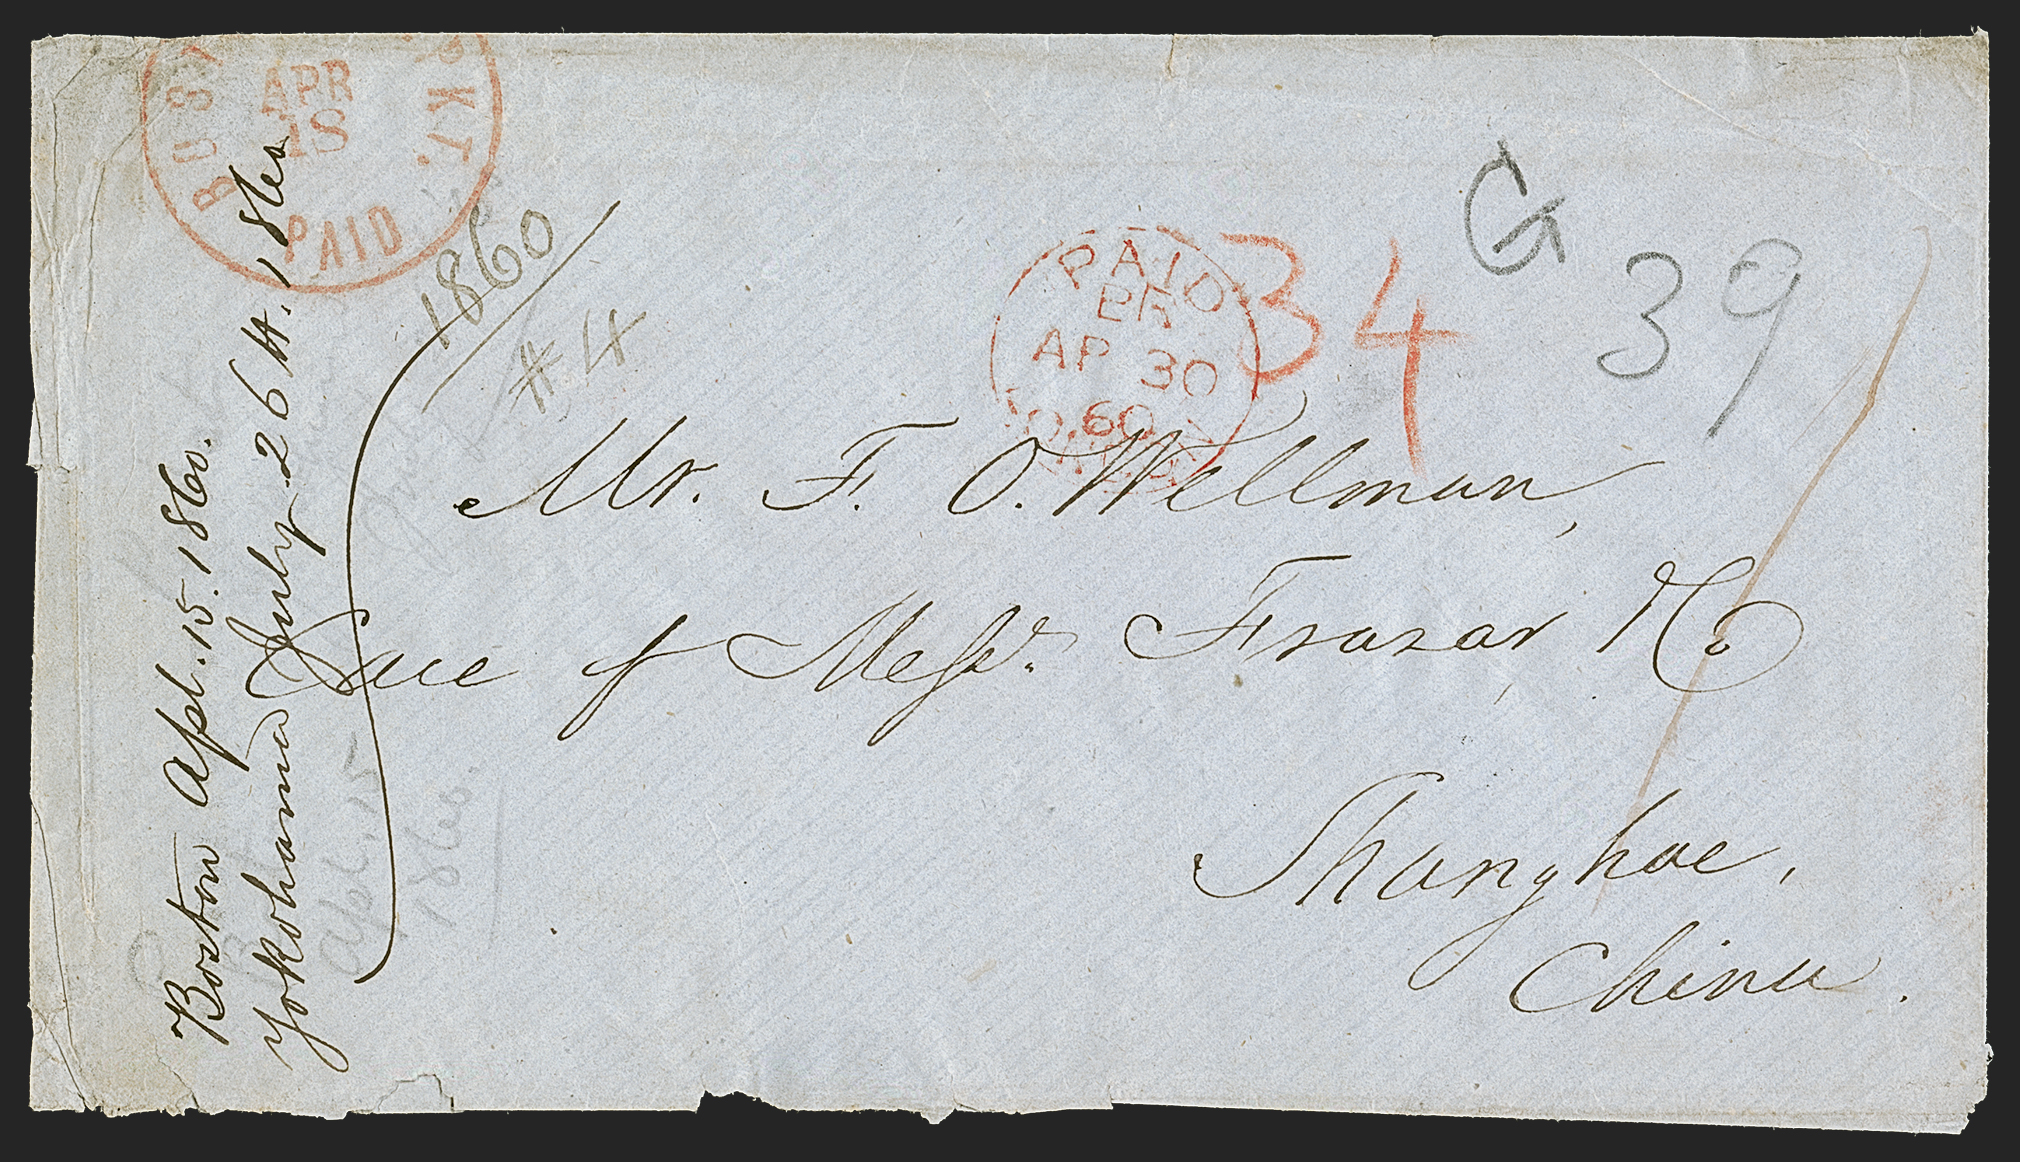 BOS
PKT.
APR
18
PAID
1860
#4
PAID
BR
AP 30
60
34
G
39
Boston Apl. 15. 1860.
Yokohama July 26th. 1860
Mr. F. O. Wellman,
Care of Messrs. Frazar & Co
Shanghae,
China.
Apl. 15
1860.